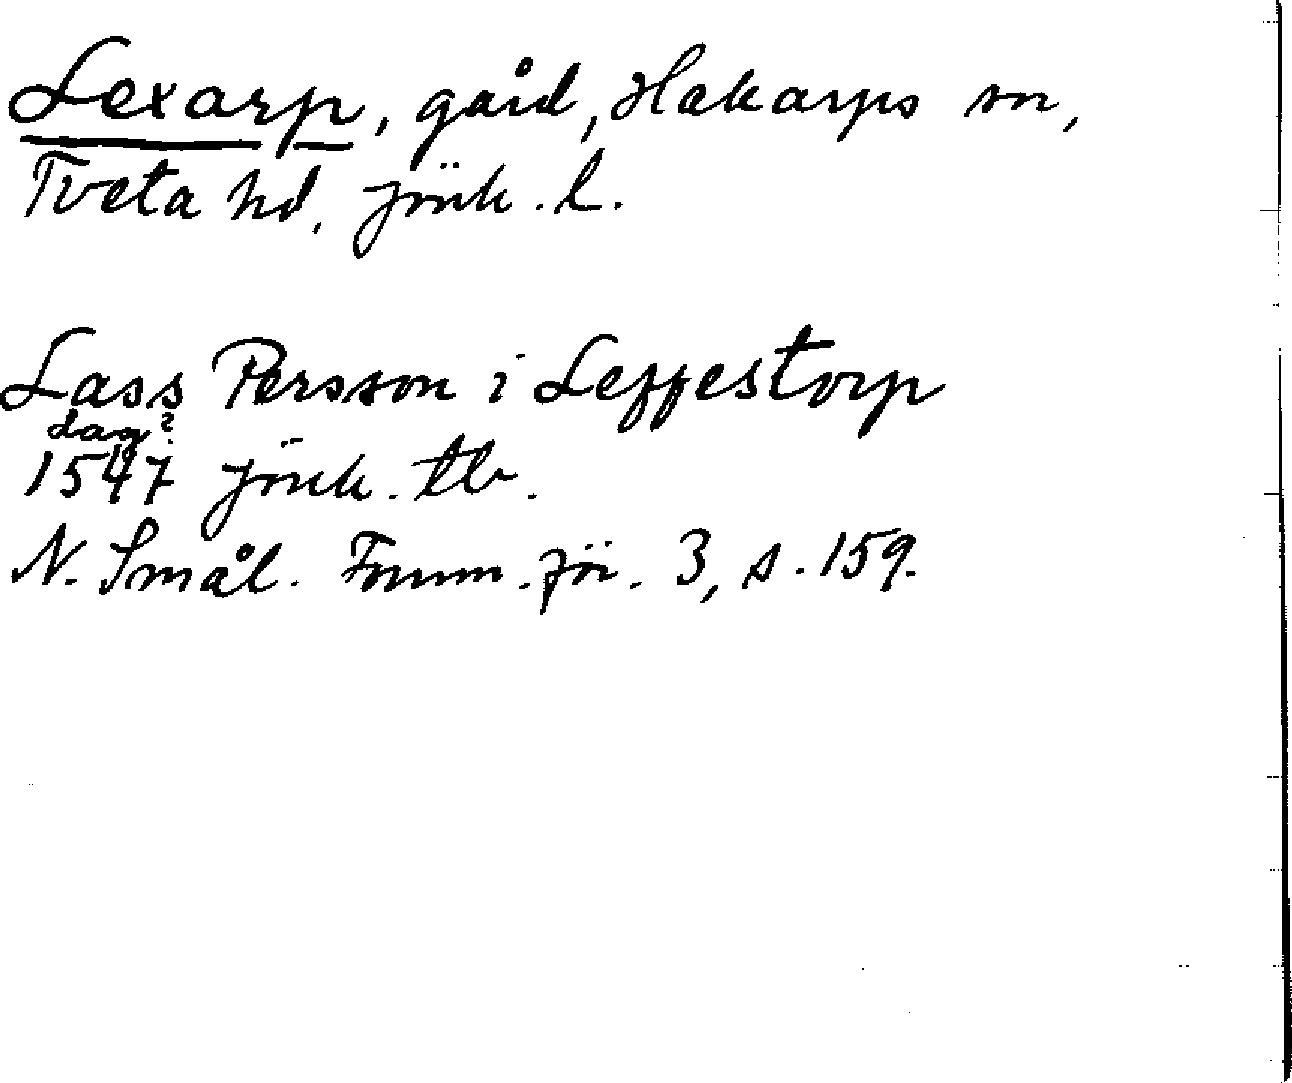 Lexarp, gård, Hakarps sn,
Tveta hd. Jönk. l.
Lass Persson i Leffestorp
dag?
1547 Jönk. tb.
N. Smål. Fornm.för. 3, s. 159.